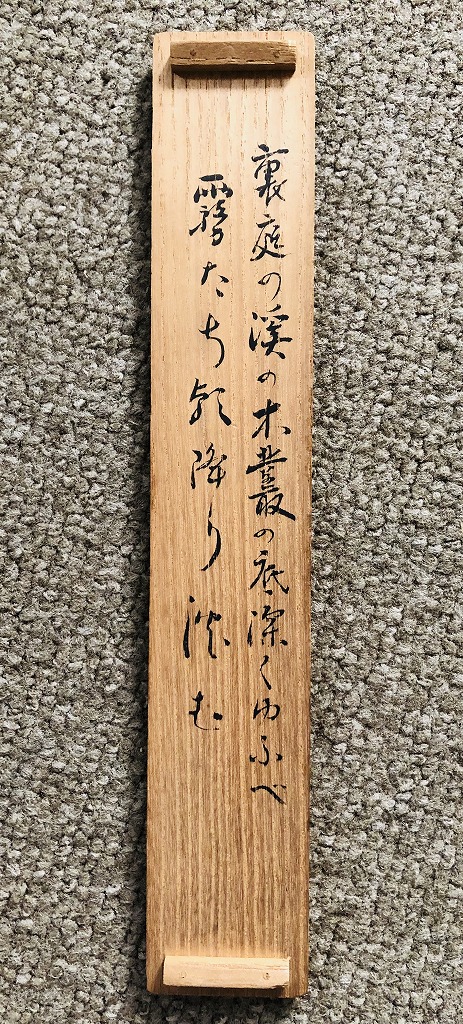 裏庭の溪の木叢の底深くゆふべ
霧たち降りむ